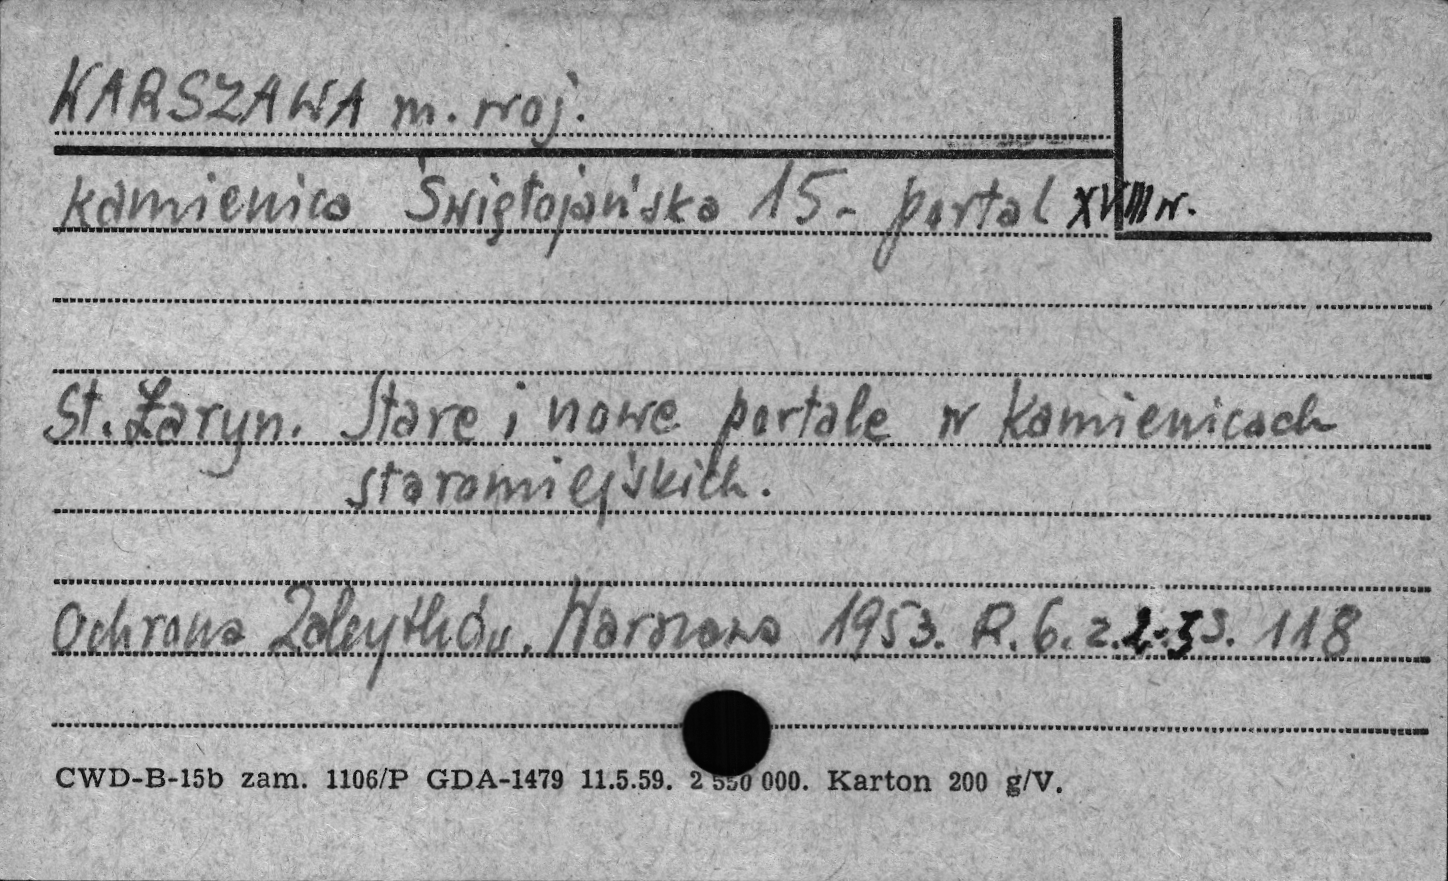 WARSZAWA m. woj.
kamienica Świętojańska 15 - portal XVIII w.
St. Żaryn. Stare i nowe portale w kamienicach
staromiejskich.
Ochrona Zabytków. Warszawa 1953. R. 6. z. 2-3 s. 118
CWD-B-15b zam. 1106/P GDA-1479 11.5.59. 2 550 000. Karton 200 g/V.